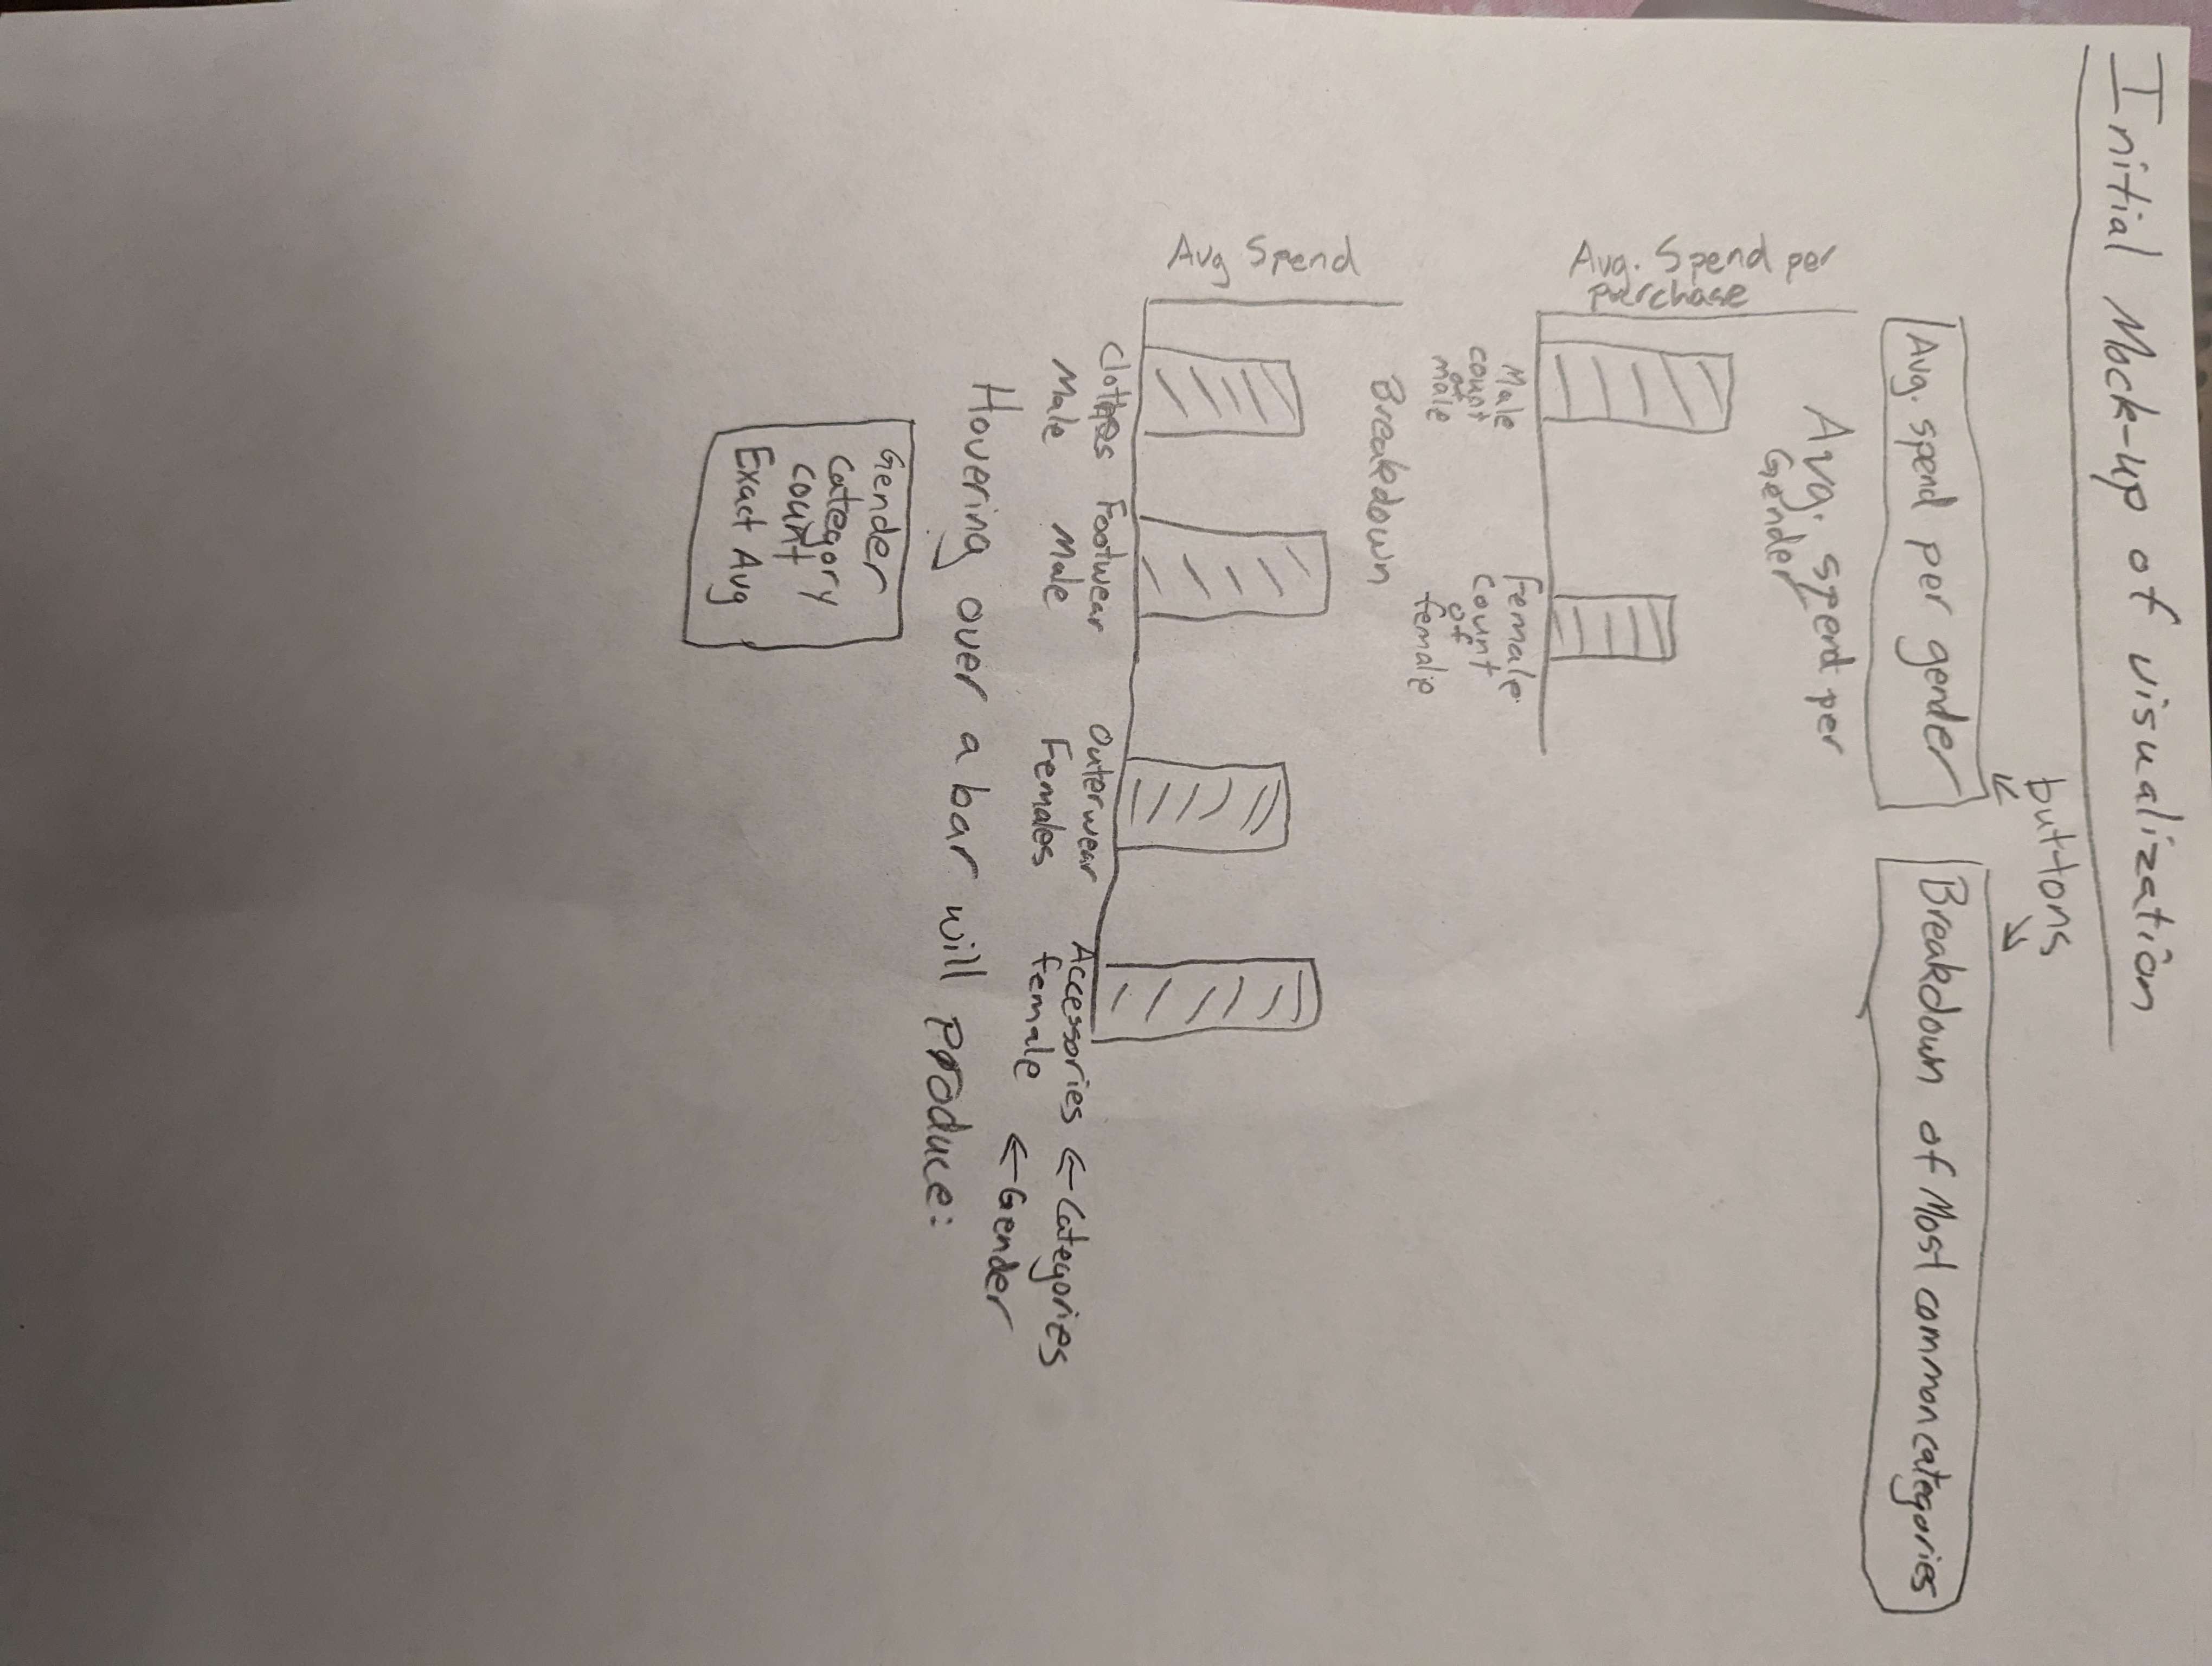 Initial Mock-up of visualization
buttons
Avg. spend per gender
Breakdown of Most common categories
Avg. spend per
Gender
Avg. Spend per
purchase
Male
count
of
male
Female
count
of
female
Breakdown
Avg Spend
Clothes Footwear Outerwear Accessories ← Categories
Male Male Females female ← Gender
Hovering over a bar will produce:
Gender
Category
count
Exact Avg